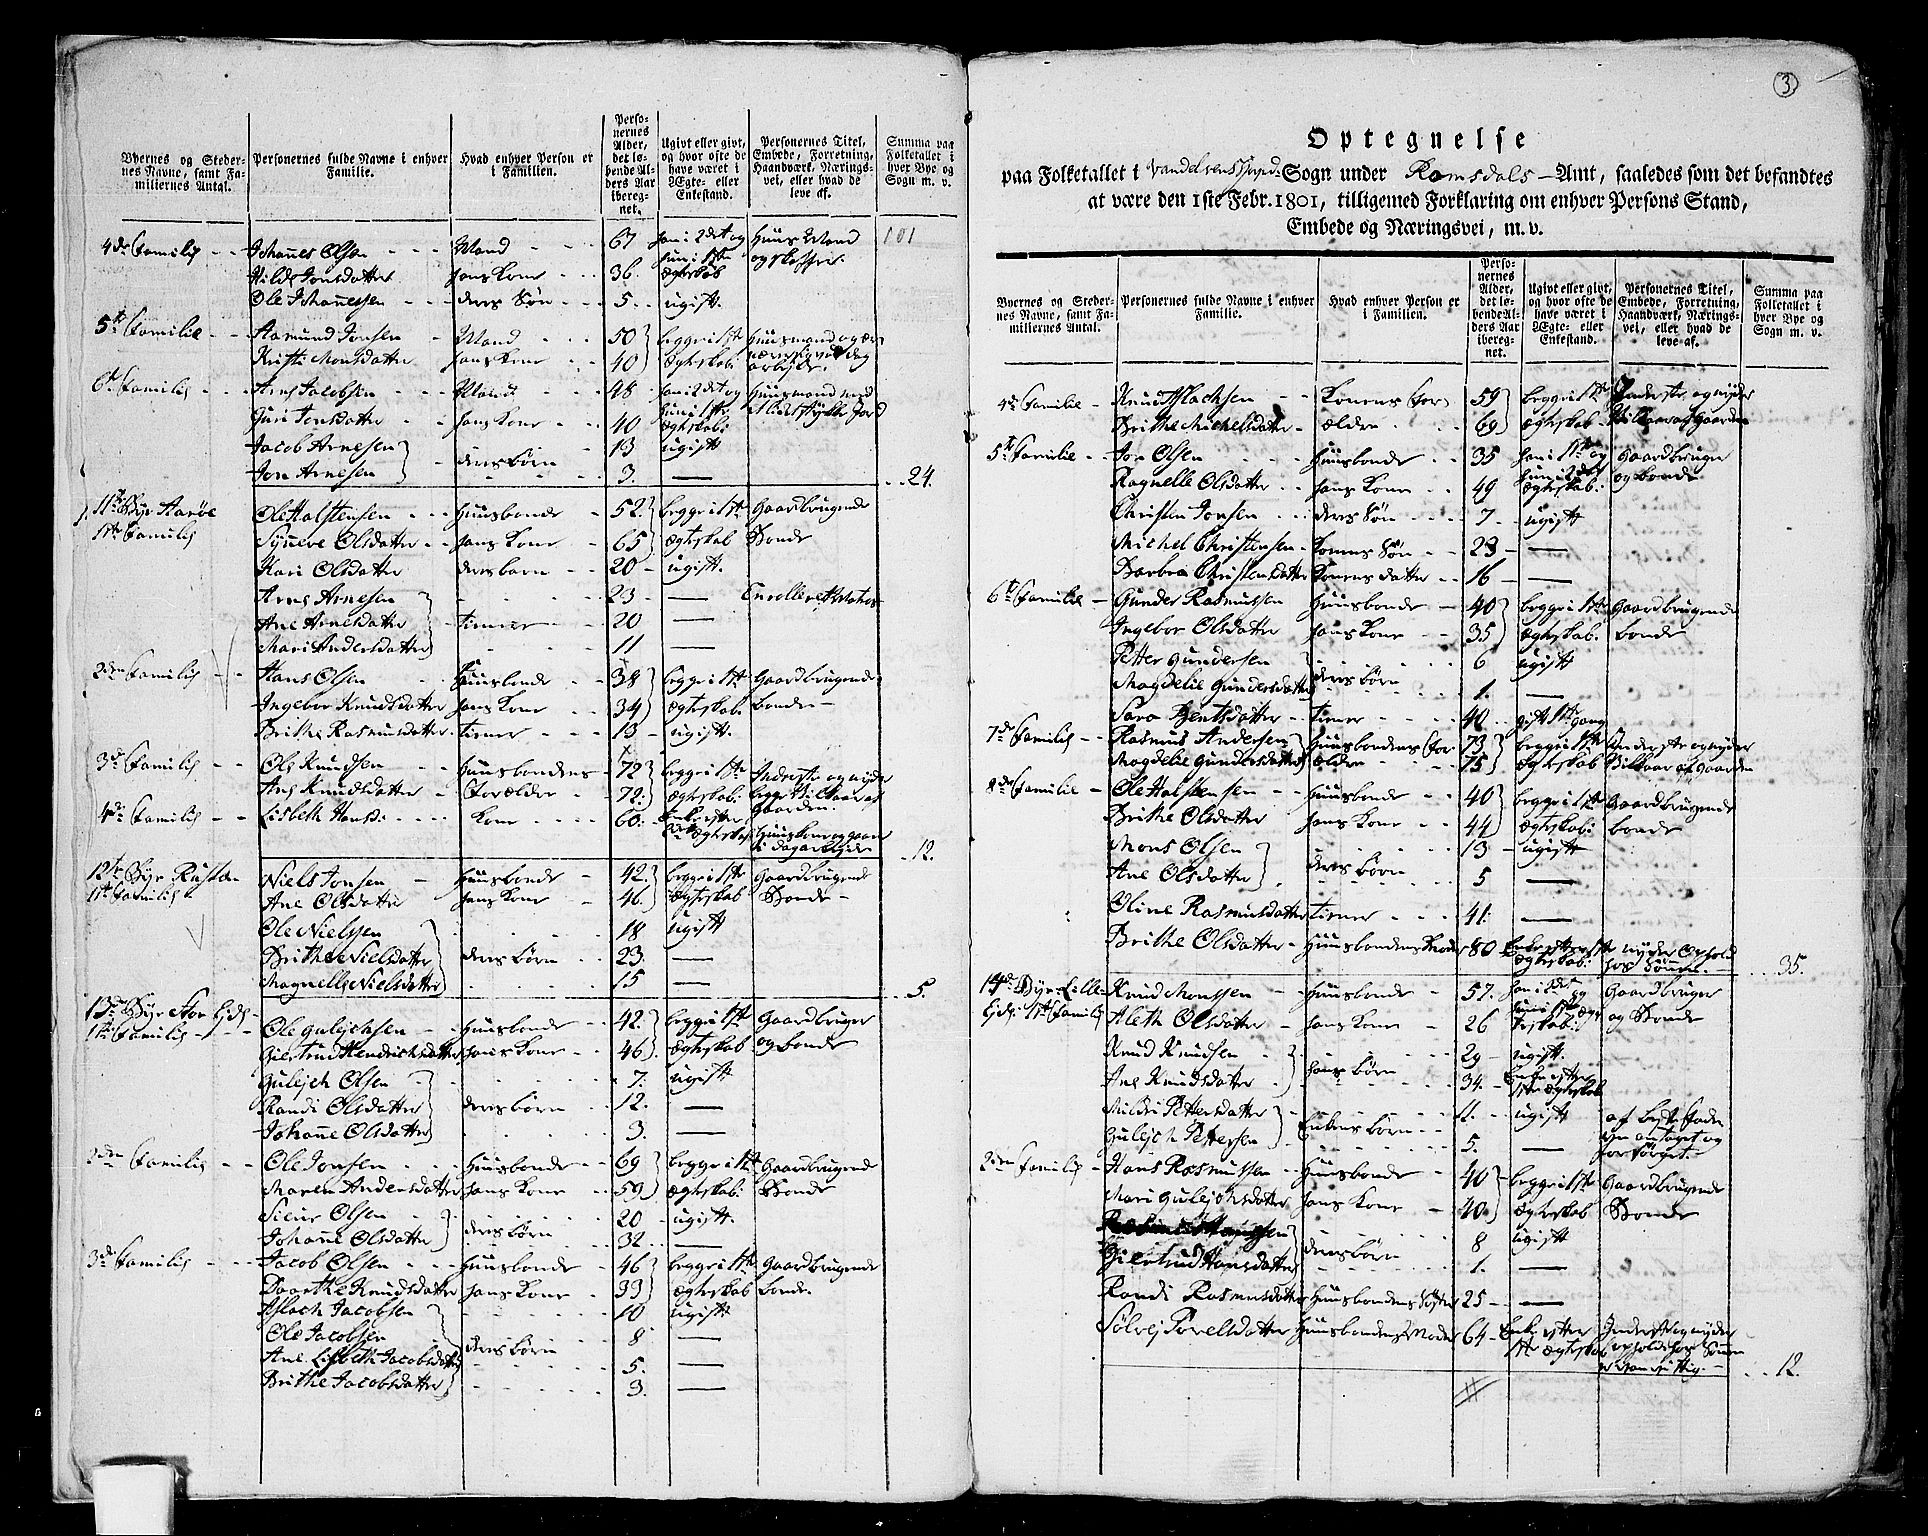 Byernes og Stedernes Navne, samt Familiernes Antal.
Personernes fulde Navne i enhver Familie.
Hvad enhver Person er i Familien.
Personernes Alder, det løbende Alders Aar iberegnet.
Ugivt eller givt, og hvor ofte de have været i Ægte- eller Enkestand.
Personernes Titel, Embede, Forretning, Haandværk, Næringsvei, eller hvad de leve af.
Summa paa Folketallet i hver Bye og Sogn m. v.
4de Familie Johannes Olsen Mand 67 han i 2det og Huusmand 101
Hilde Jonsdatter hans Kone 36 Egteskab
Ole Johannessen deres Søn 5 ugift
5te Familie Aamund Jonsen Mand 50 begge i 1ste
Kristi Monsdatter hans Kone 40 Egteskab
6te Familie Arne Jacobsen Mand 48 han i 2det og Huusmand med
Guri Jonsdatter hans Kone 40 Egteskab Jord
Jacob Arnesen 13 ugift
Jon Arnesen deres børn 3 — 24.
11te Bye Aarøe Ole Halstensen Huusbonde 52 begge i 1ste Gaardbrugende
1te Familie Synneve Olsdatter hans Kone 65 Egteskab Bonde
Kari Olsdatter deres barn 20 ugift
Arne Arnesen 23 — Enrolleret Matros
Ane Arnesdatter tiener 20 —
Mari Andersdatter 11 —
2den Familie Hans Olsen Huusbonde 38 begge i 1ste Gaardbrugende
Ingebor Knudsdatter hans Kone 34 Egteskab bonde
Brithe Rasmusdatter tiener 13 ugift
3de Familie Ole Knudsen Huusbondens 72 begge i 1ste Inderste og nyder
Ane Knudsdatter Forælder 72 Egteskab
4de Familie Lisbeth Hansd: Kone 60 Gaarden
12.
12te Bye Niels Jonsen Huusbonde 42 begge i 1ste Gaardbrugende
1te Familie Ane Olsdatter hans Kone 46 Egteskab Bonde
Ole Nielssen 18 ugift
Brithe Nielsdatter deres børn 23 —
Magnelle Nielsdatter 15 — 5.
13de Bye Stor
1te Familie Ole Gulejchsen Huusbonde 42 begge i 1ste Gaardbruger
Giertrud Hendrichsdatter hans Kone 46 Egteskab og bonde
Gulejch Olsen 7 ugift
Randi Olsdatter deres børn 12 —
Johanne Olsdatter 3 —
2den Familie Ole Jonsen Huusbonde 69 begge i 1ste Gaardbrugende
Maren Andersdatter hans Kone 59 Egteskab Bonde
Sieur Olsen 20 ugift
Johanne Olsdatter deres børn 32 —
3de Familie Jacob Olsen Huusbonde 46 begge i 1ste Gaardbrugende
Daarthe Knudsdatter hans Kone 33 Egteskab bonde
Aslach Jacobsen 10 ugift
Ole Jacobsen deres børn 8 —
Ane Lisbeth Jacobsdatter 5 —
Brithe Jacobsdatter 3 —
3
Optegnelse
paa Folketallet i Sogn under Romsdals Amt, saaledes som det befandtes
at være den 1ste Febr. 1801, tilligemed Forklaring om enhver Persons Stand,
Embede og Næringsvei, m. v.
Byernes og Stedernes Navne, samt Familiernes Antal.
Personernes fulde Navne i enhver Familie.
Hvad enhver Person er i Familien.
Personernes Alder, det løbende Alders Aar iberegnet.
Ugivt eller givt, og hvor ofte de have været i Ægte- eller Enkestand.
Personernes Titel, Embede, Forretning, Haandværk, Næringsvei, eller hvad de leve af.
Summa paa Folketallet i hver Bye og Sogn m. v.
4de Familie Knud Aslachsen Konens For- 59 begge i 1ste Inderste og nyder
Brithe Michelsdatter ælder 69 Egteskab
5te Familie Jon Olsen Huusbonde 35 han i 1ste og Gaardbruger
Ragnelle Olsdatter hans Kone 49 Egteskab og bonde
Christen Jonsen deres Søn 7 ugift
Michel Christensen Konens Søn 23 —
Barbra Christensdatter Konens datter 16 —
6te Familie Gunder Rasmussen Huusbonde 40 begge i 1ste Gaardbrugende
Ingebor Olsdatter hans Kone 35 Egteskab bonde
Petter Gundersen 6 ugift
Magdelie Gundersdatter deres børn 1 —
Sara Bentsdatter tiener 40 gift 1ste gang
7de Familie Rasmus Andersen Huusbondens For- 73 begge i 1ste Inderste og nyder
Magdelie Gundersdatter ælder 75 Egteskab Vilkaar af Gaarden
8de Familie Ole Halstensen Huusbonde 40 begge i 1ste Gaardbrugende
Brithe Olsdatter hans Kone 44 Egteskab bonde
Mons Olsen 13 ugift
Ane Olsdatter deres børn 5 —
Oline Rasmusdatter tiener 41 —
Brithe Olsdatter Huusbondens Moder 80 nyder Ophold
Egteskab hos Sønnen 35.
14de Bye Lille- Knud Monssen Huusbonde 57 han i 2det og Gaardbruger
1te Familie Aleth Olsdatter hans Kone 26 og Bonde
Knud Knudsen 29 ugift
Ane Knudsdatter hans børn 34 Enke efter 1ste Egteskab
Mildri Pettersdatter 11 ugift
Gulejch Pettersen Enkens børn 5 — antaget og
forsørget
2den Familie Hans Rasmussen Huusbonde 40 begge i 1ste Gaardbrugende
Mari Gulejchsdatter hans Kone 40 Egteskab Bonde
8 ugift
Giertrud Hansdatter deres børn 1 —
Randi Rasmusdatter Huusbondens Søster 25 —
Sølvej Povelsdatter Huusbondens Moder 64 Enke efter Inderste og nyder
1ste Egteskab ophold hos Sønnen
12.